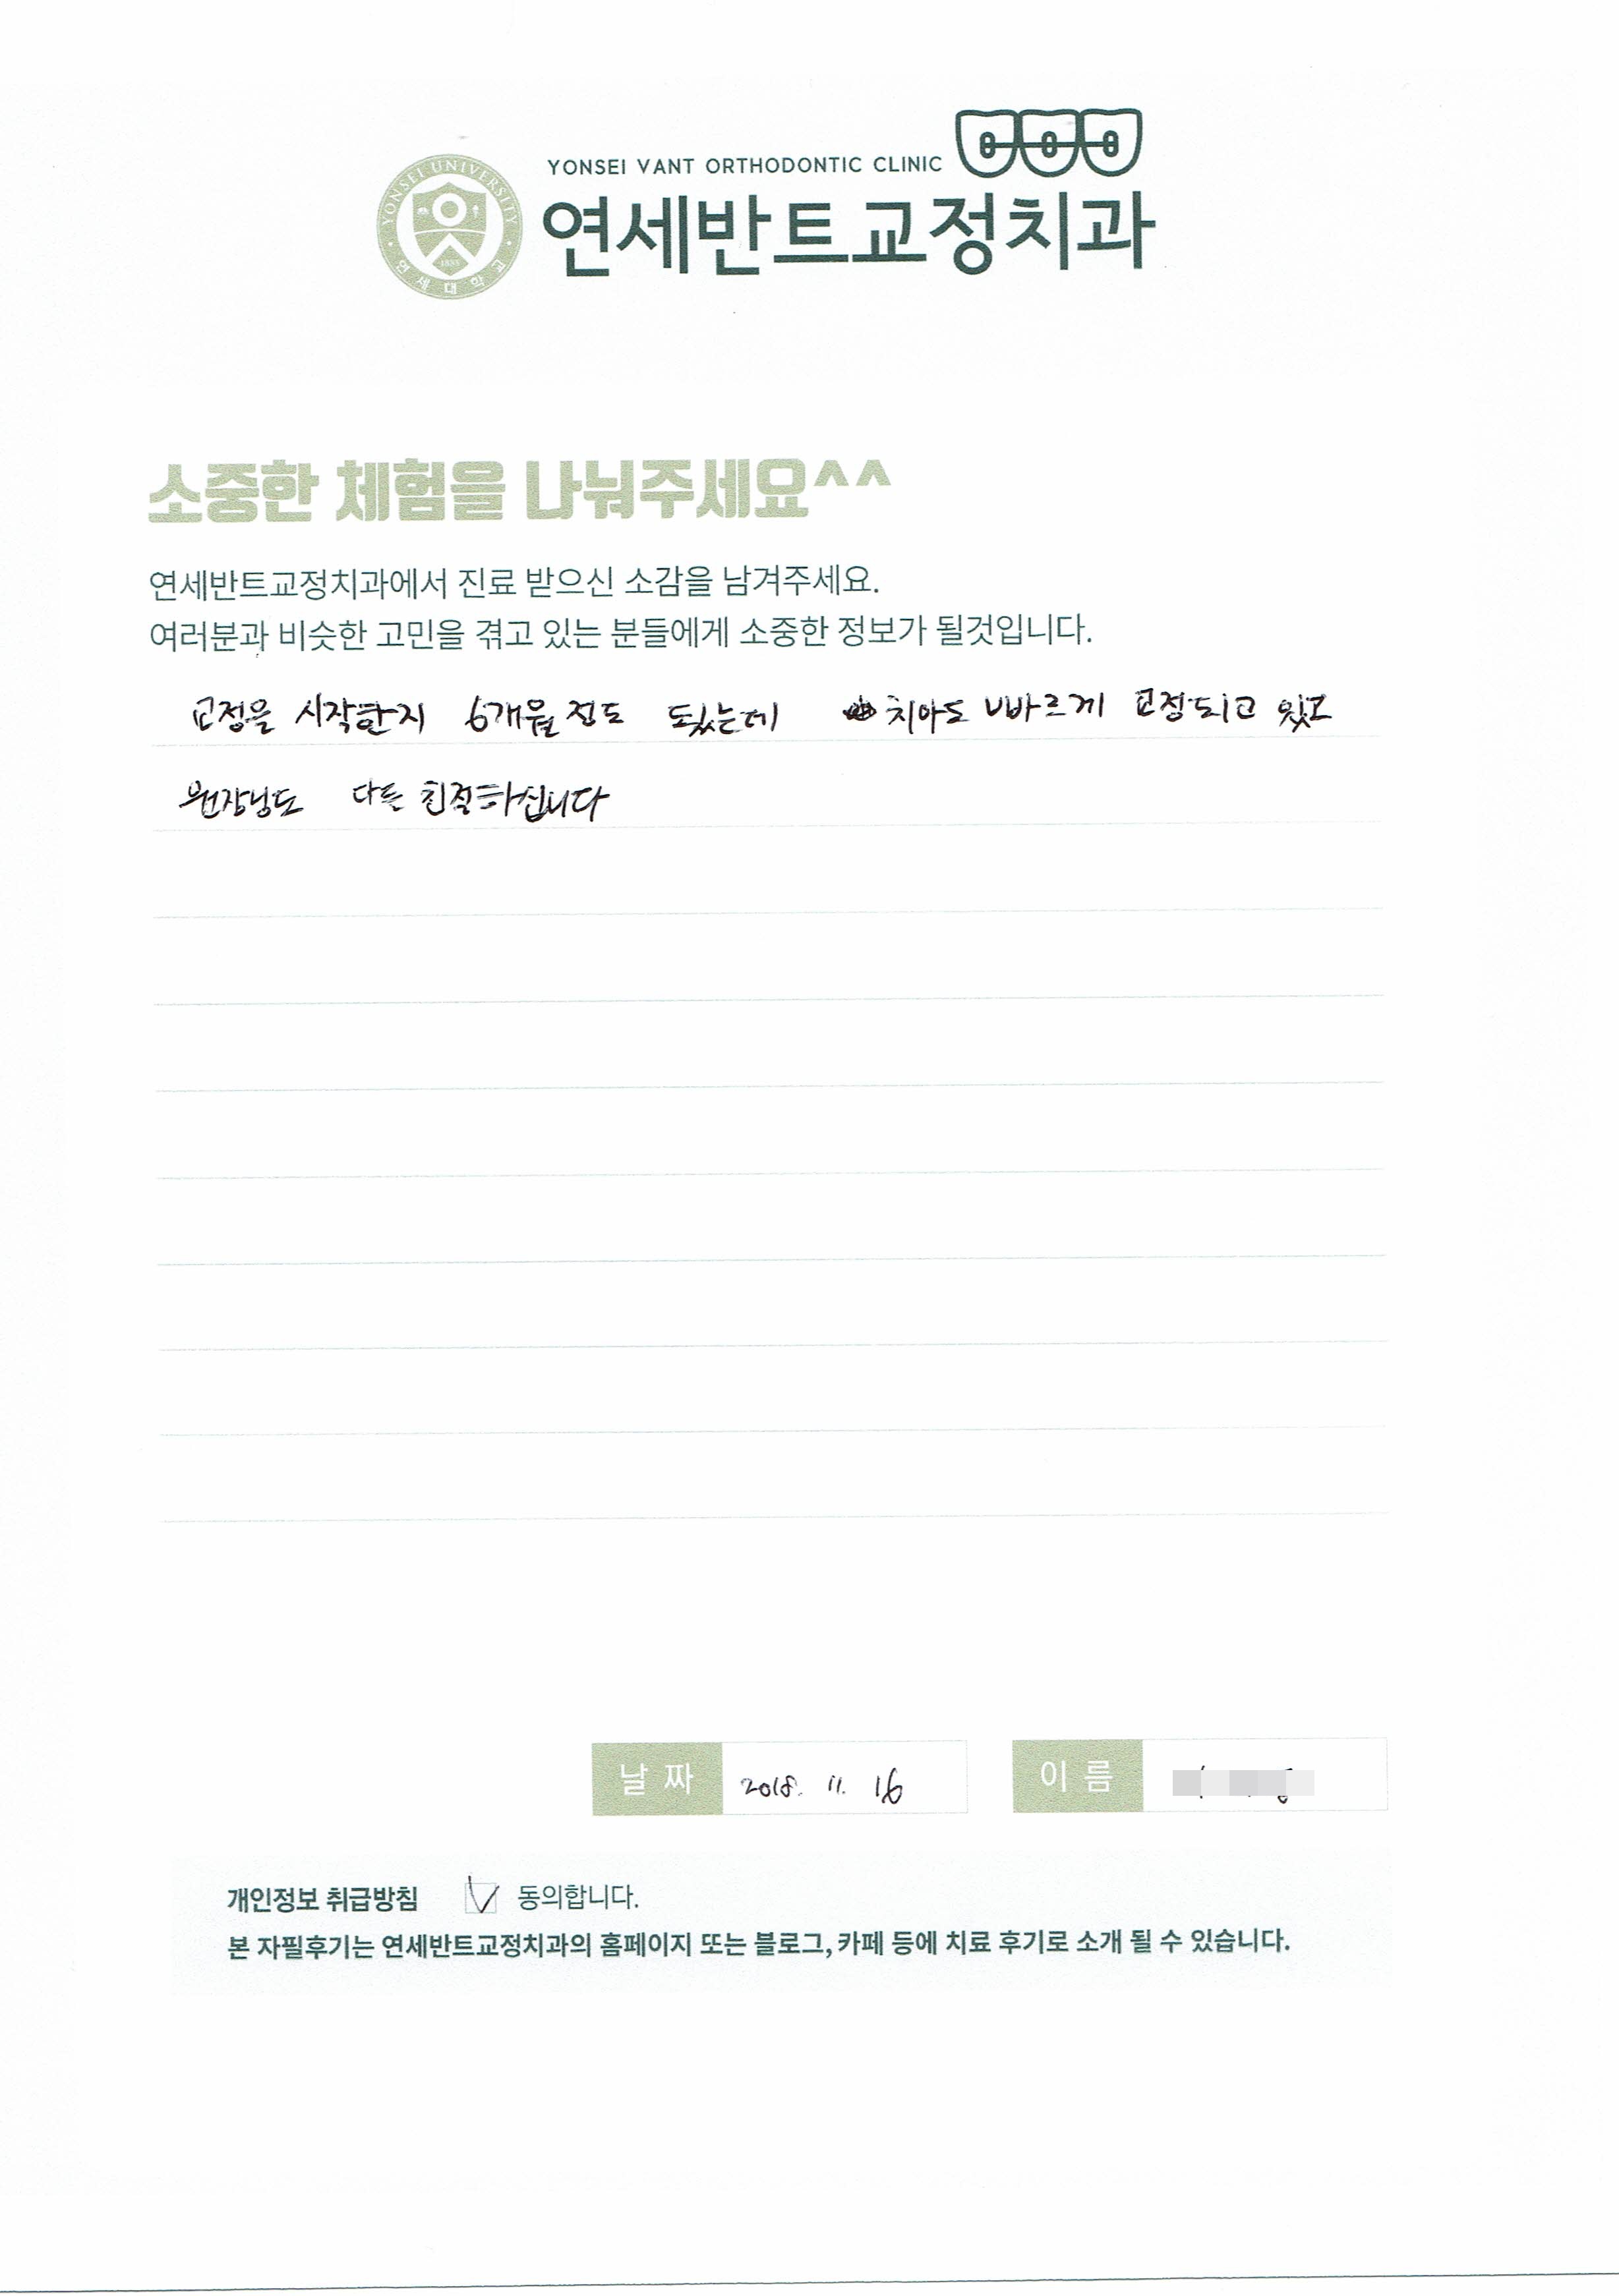 YONSEI VANT ORTHODONTIC CLINIC
YONSEI UNIVERSITY
1885
연세대학교
연세반트교정치과
소중한 체험을 나눠주세요^^
연세반트교정치과에서 진료 받으신 소감을 남겨주세요.
여러분과 비슷한 고민을 겪고 있는 분들에게 소중한 정보가 될것입니다.
교정을 시작한지 6개월 정도 됬는데 치아도 빠르게 교정되고 있고
원장님도 다들 친절하십니다
날 짜 2018. 11. 16
이 름
개인정보 취급방침 동의합니다.
본 자필후기는 연세반트교정치과의 홈페이지 또는 블로그, 카페 등에 치료 후기로 소개 될 수 있습니다.